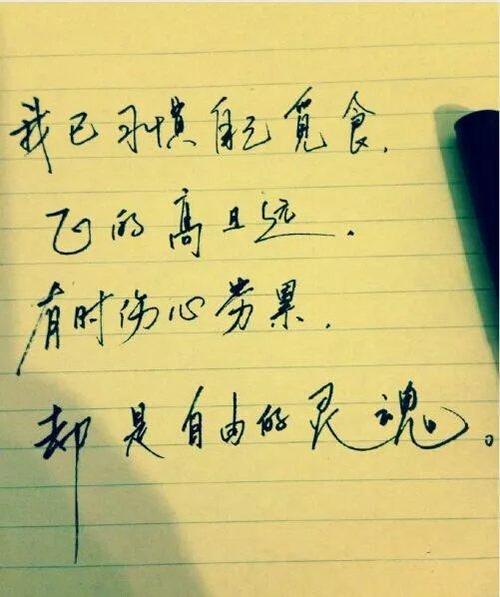 我已习惯自己觅食,
飞的高且远.
有时伤心劳累,
却是自由的灵魂。